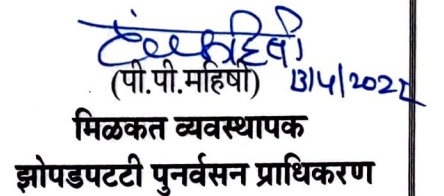 (पी.पी.महिषी)
मिळकत व्यवस्थापक
झोपडपटटी पुनर्वसन प्राधिकरण